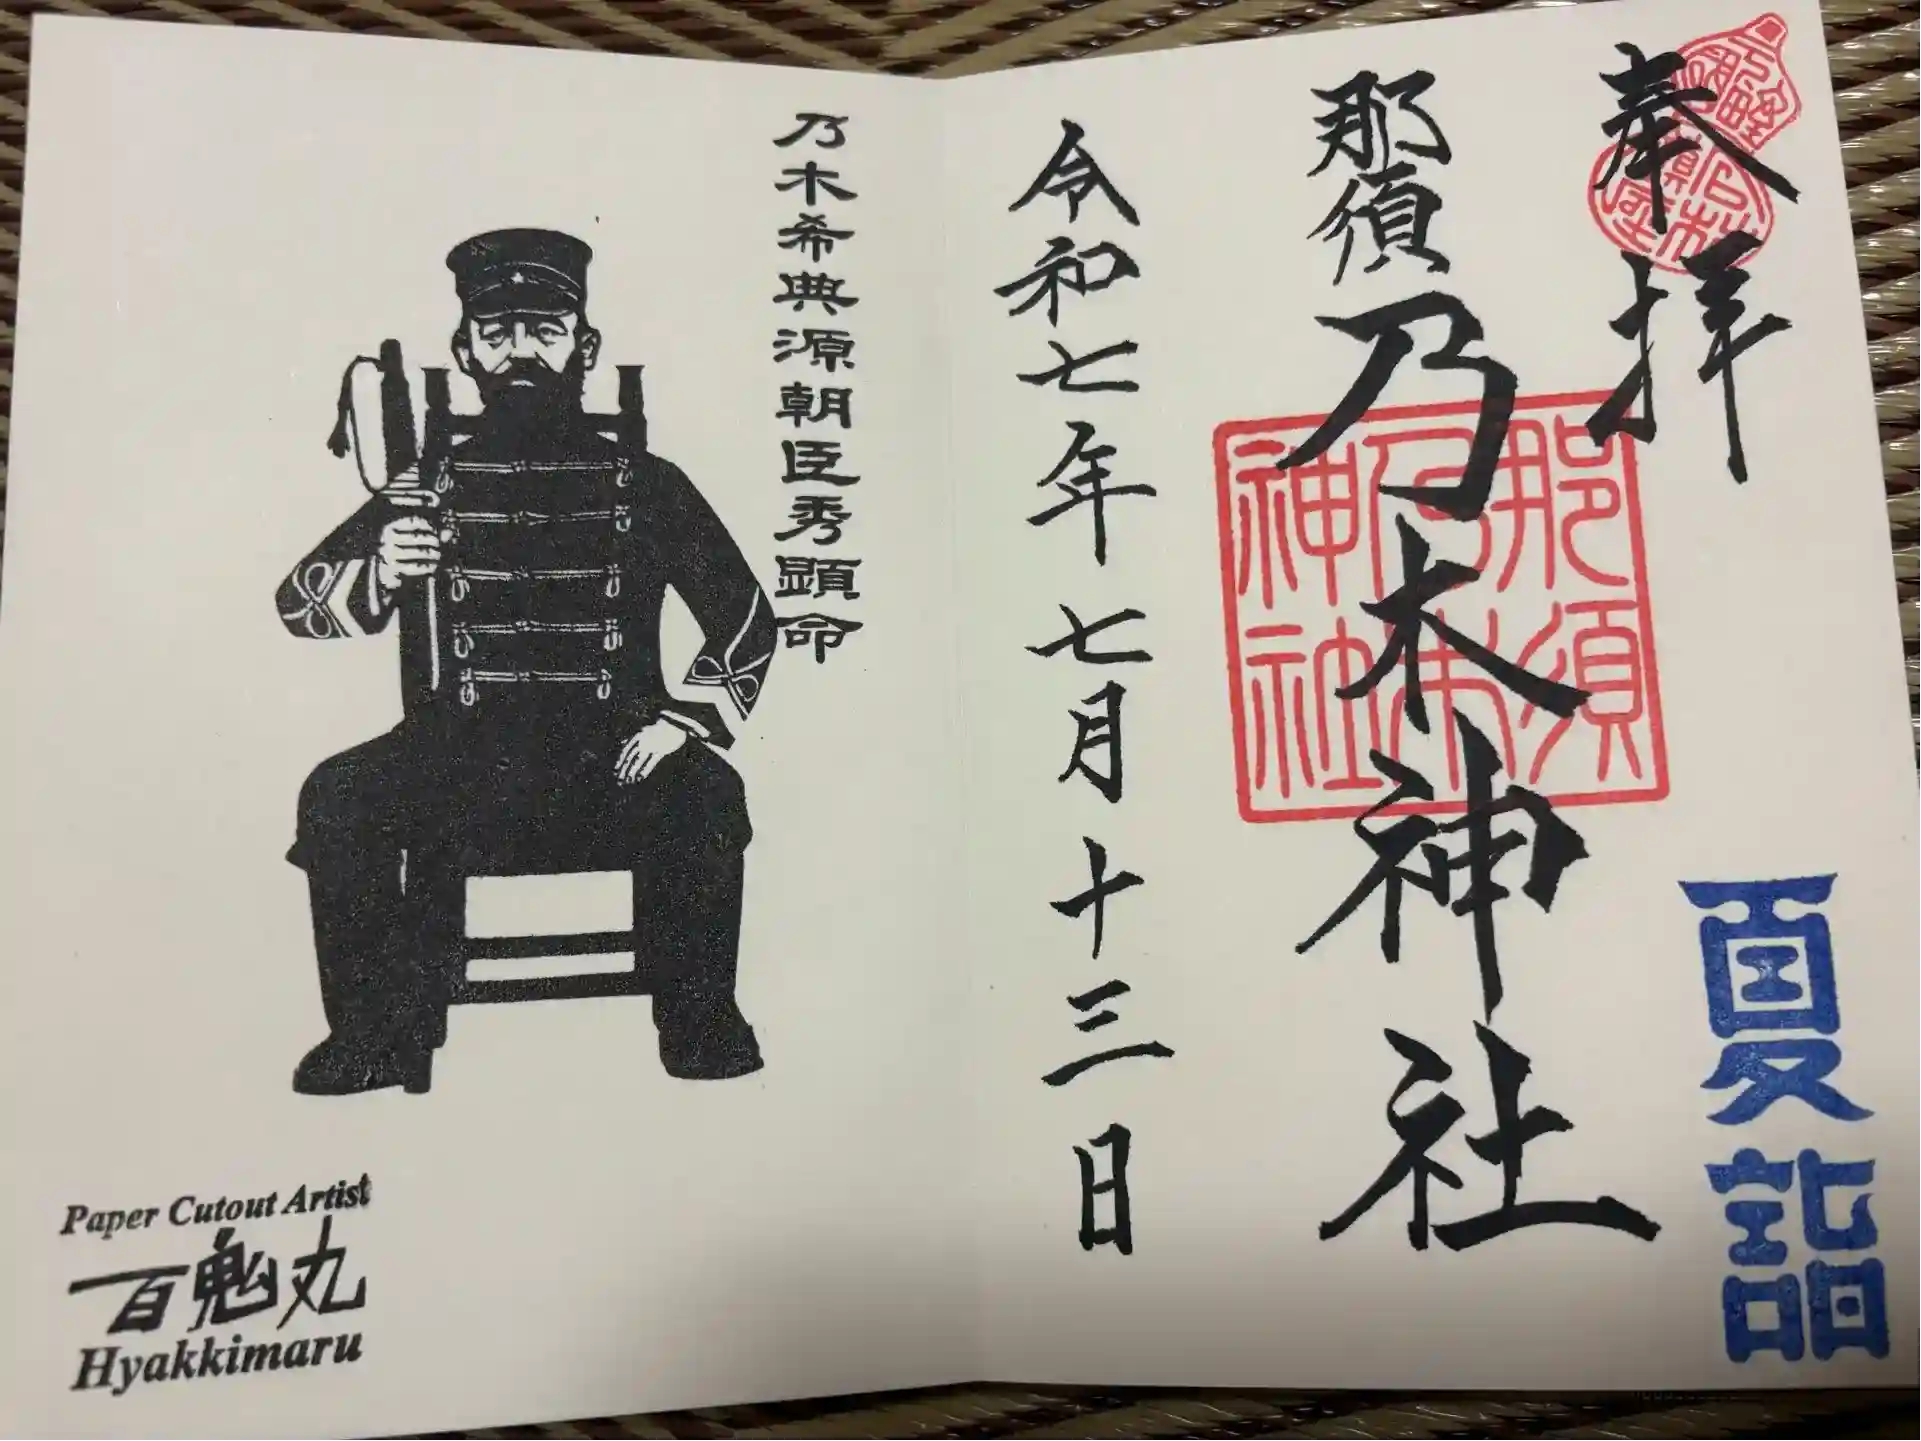 奉拝
那須乃木神社
那須
乃木
神社
夏詣
令和七年七月十三日
乃木希典源朝臣秀顕命
Paper Cutout Artist
百鬼丸
Hyakkimaru